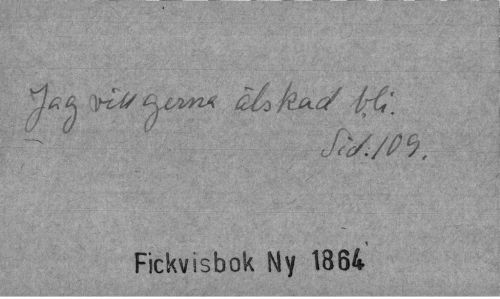 Jag vill gerna älskad bli.
Sid. 109.
Fickvisbok Ny 1864